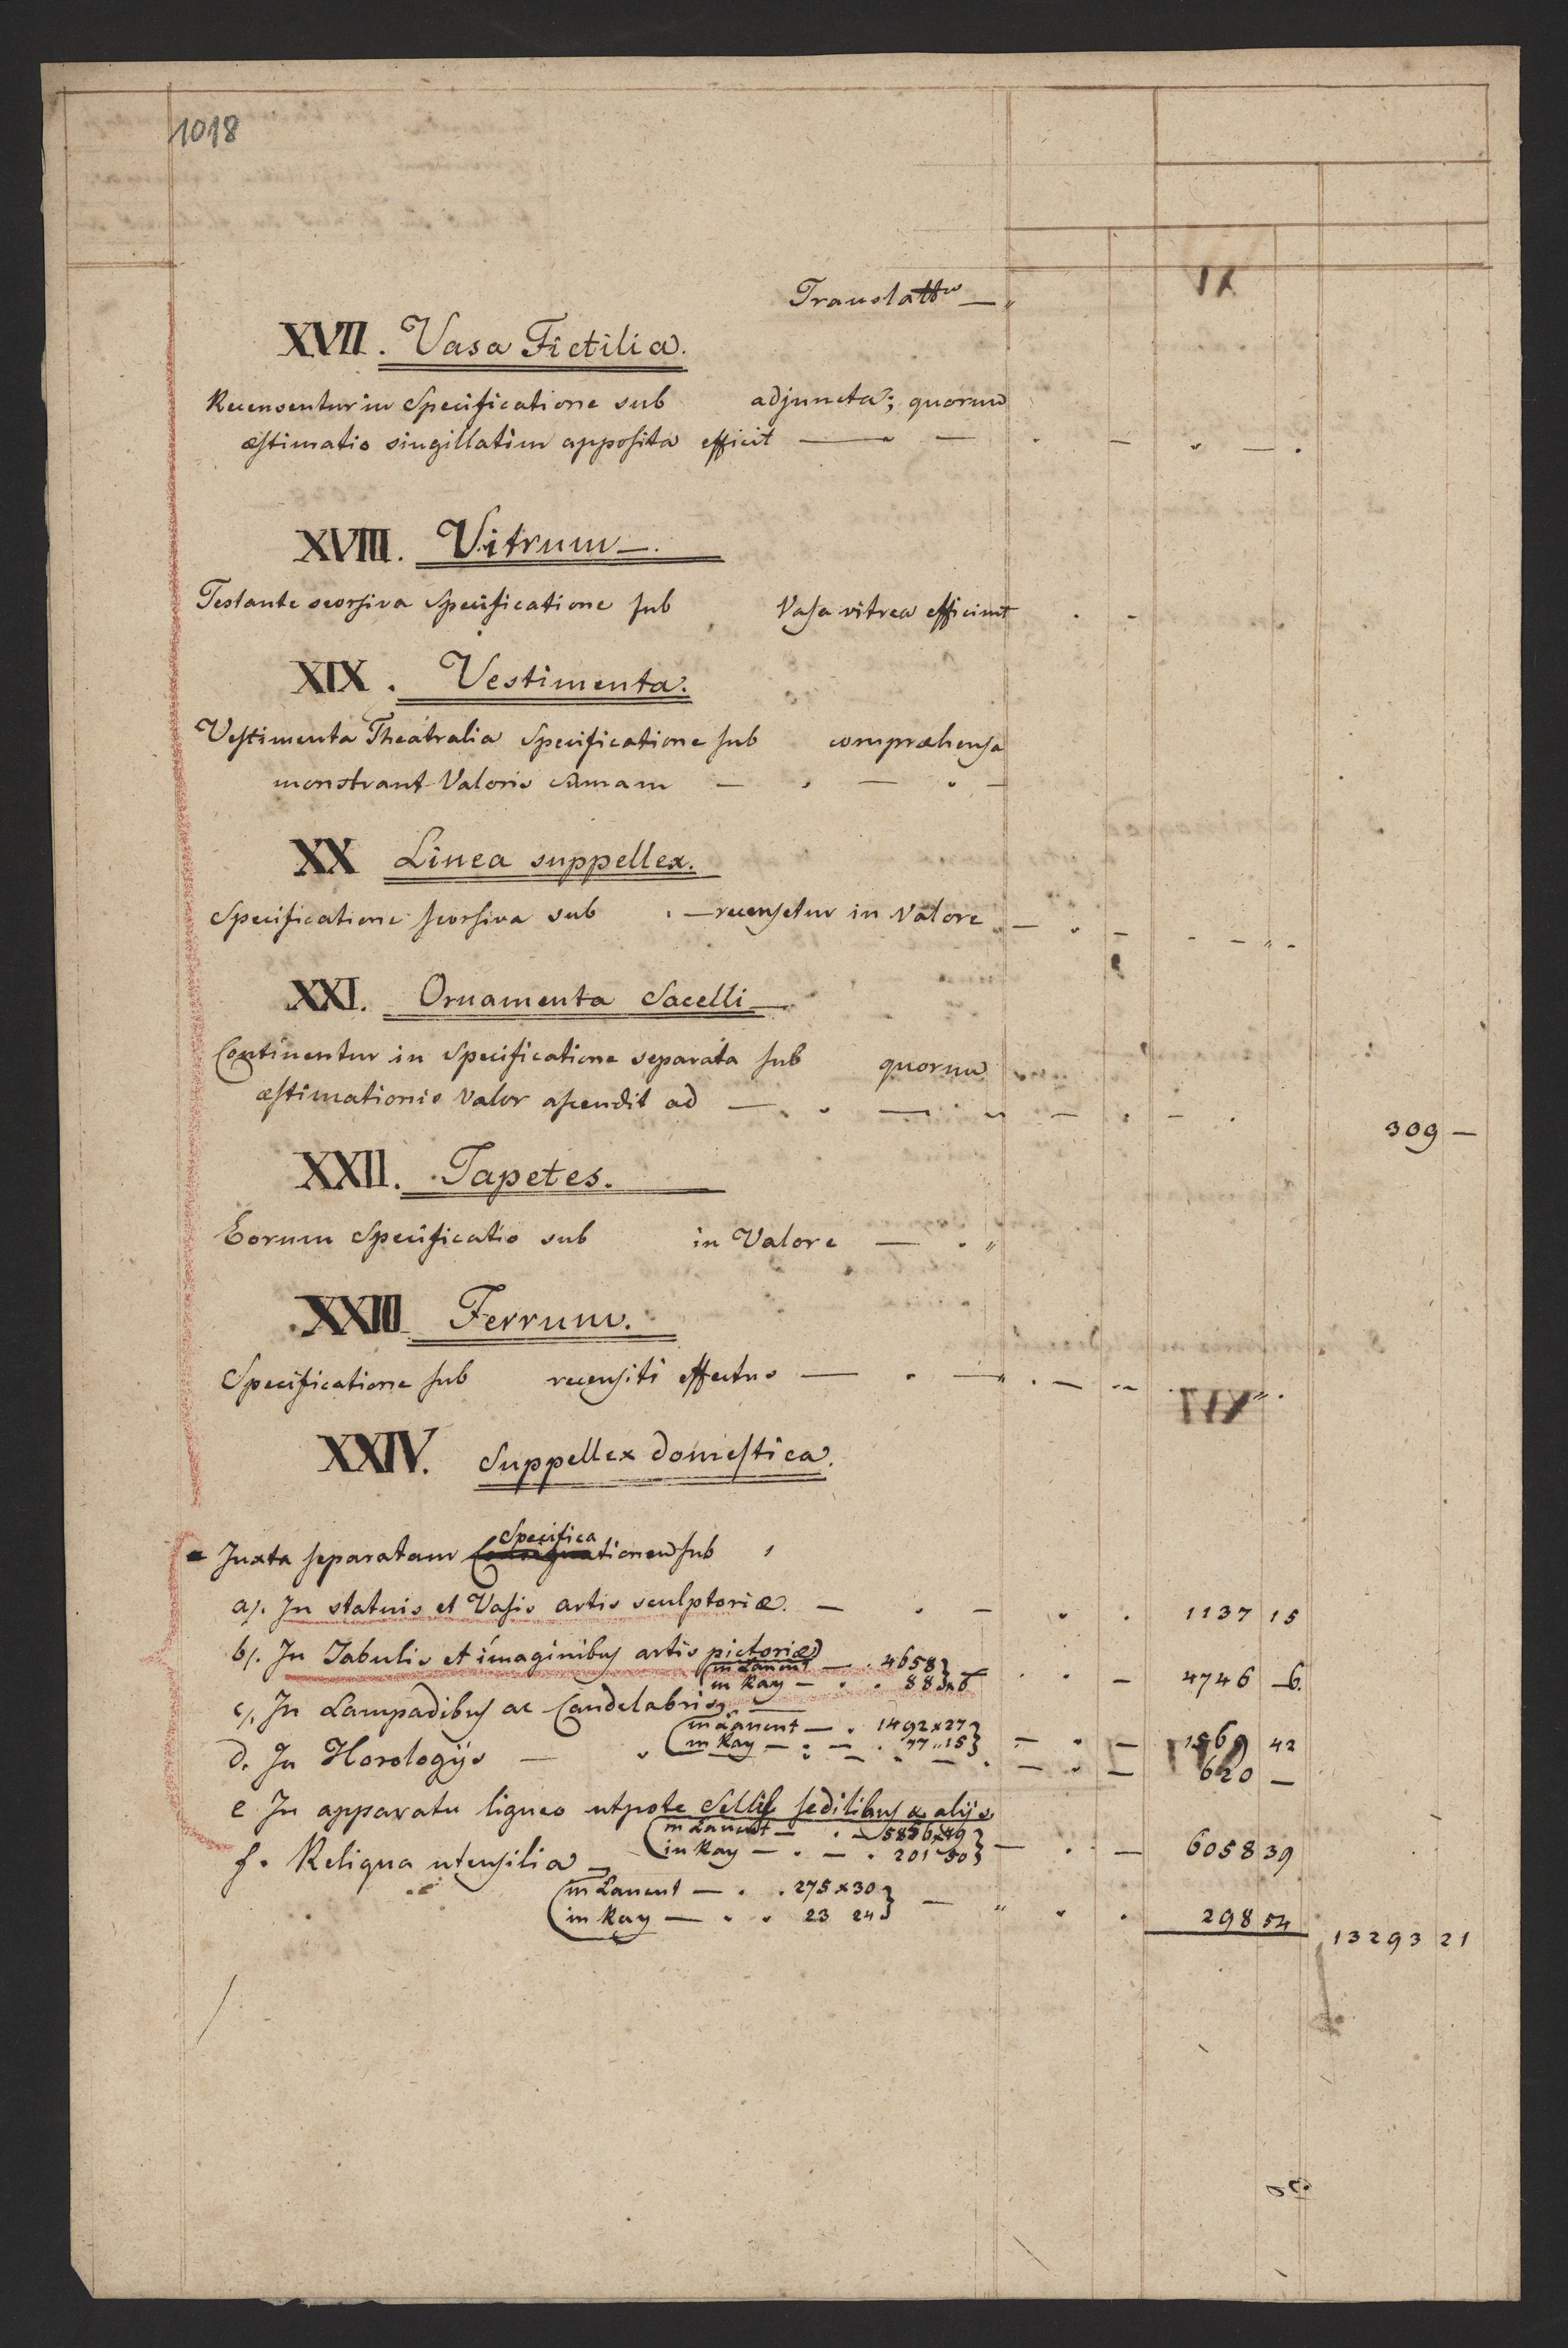 1018
Translatt
XVII. Vasa Fictilia.
Recensentur in Specificatione sub adjuncta; quorum
æstimatio singillatim apposita efficit —
XVIII. Vitrum —.
Testante seorsiva Specificatione sub Vasa vitrea efficiunt
XIX. Vestimenta.
Vestimenta Theatralia Specificatione sub compræhensa
monstrant Valoris sumam —
XX Linea suppellex.
Specificatione seorsiva sub — recensetur in Valore —
XXI. Ornamenta Sacelli —
Continentur in Specificatione separata sub quorum
æstimationis Valor ascendit ad — 309 —
XXII. Tapetes.
Eorum Specificatio sub in Valore —
XXIII Ferrum.
Specificatione sub recensiti effectus —
XXIV. Suppellex domestica.
Specifica
Juxta separatam tionem sub
a). In statuis et Vasis artis sculptoriæ. — 1137 15
b). In Tabulis et imaginibus artis pictoriæ
in Lanent — 4658
in Ray — 88 x 6 — 4746 — 6.
c). In Lampadibus ac Candelabris, —
in Lanent — 1492 x 27
in Ray — 77 15 — 1569 42
d. In Horologijs — 620 —
e In apparatu ligneo utpote Sellis sedilibus & alijs
in Lanent — 5856 x 49
in Ray — 201 50 — 6058 39
f. Reliqua utensilia —
in Lanent — 275 x 30
in Ray — 23 24 — 298 54
13293 21